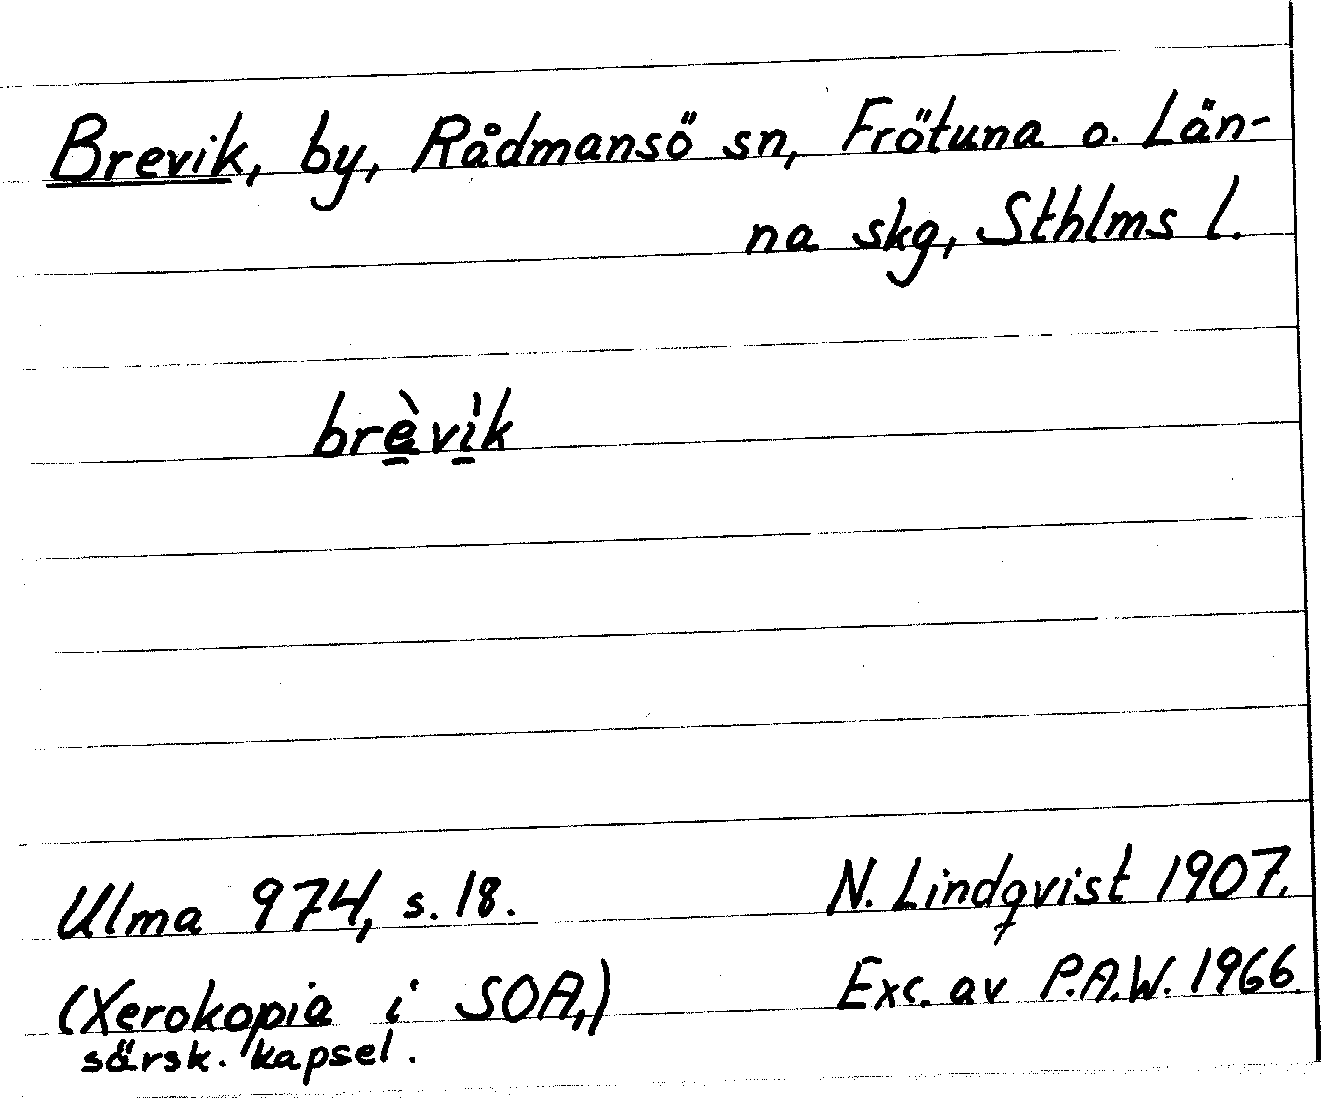 Brevik, by, Rådmansö sn, Frötuna o. Län-
na skg, Sthlms l.
brè̱vì̱k
Ulma 974, s. 18. N. Lindqvist 1907.
(Xerokopia i SOA,) Exc. av P.A.W. 1966.
särsk. kapsel.